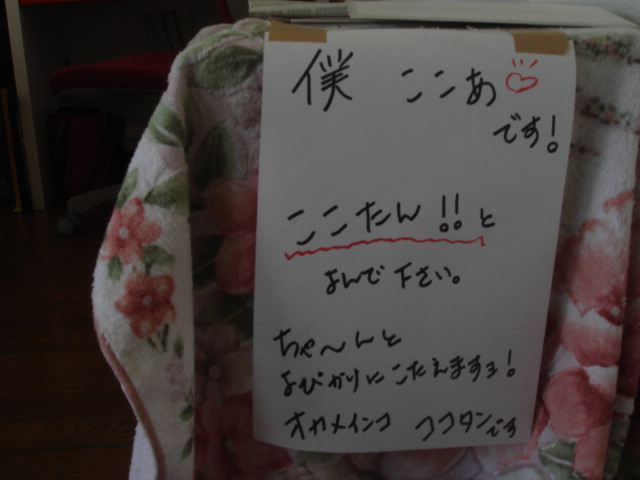 僕 ここあ♡
です!
ここたん!!と
よんで下さい。
ちゃ〜んと
よびかけにこたえますョ!
オカメインコ ココタンです